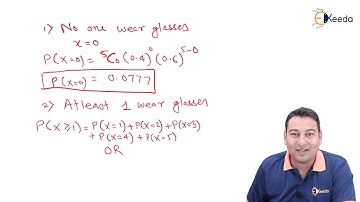 1) No one wear glasses
x=0
P(X=0) = ⁵C₀ (0.4)⁰ (0.6)⁵⁻⁰
P(X=0) = 0.0777
2) Atleast 1 wear glasses
P(X≥1) = P(X=1) + P(X=2) + P(X=3)
+ P(X=4) + P(X=5)
OR
Ekeeda
Ekeeda